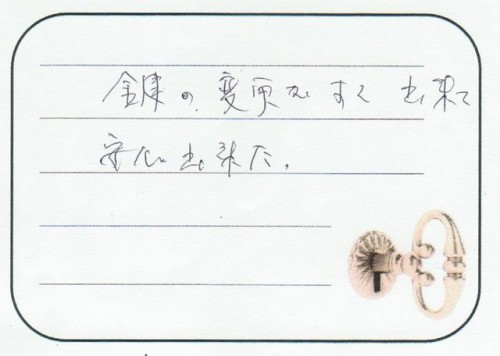 金庫の変更がすぐ出来て
安心出来た。